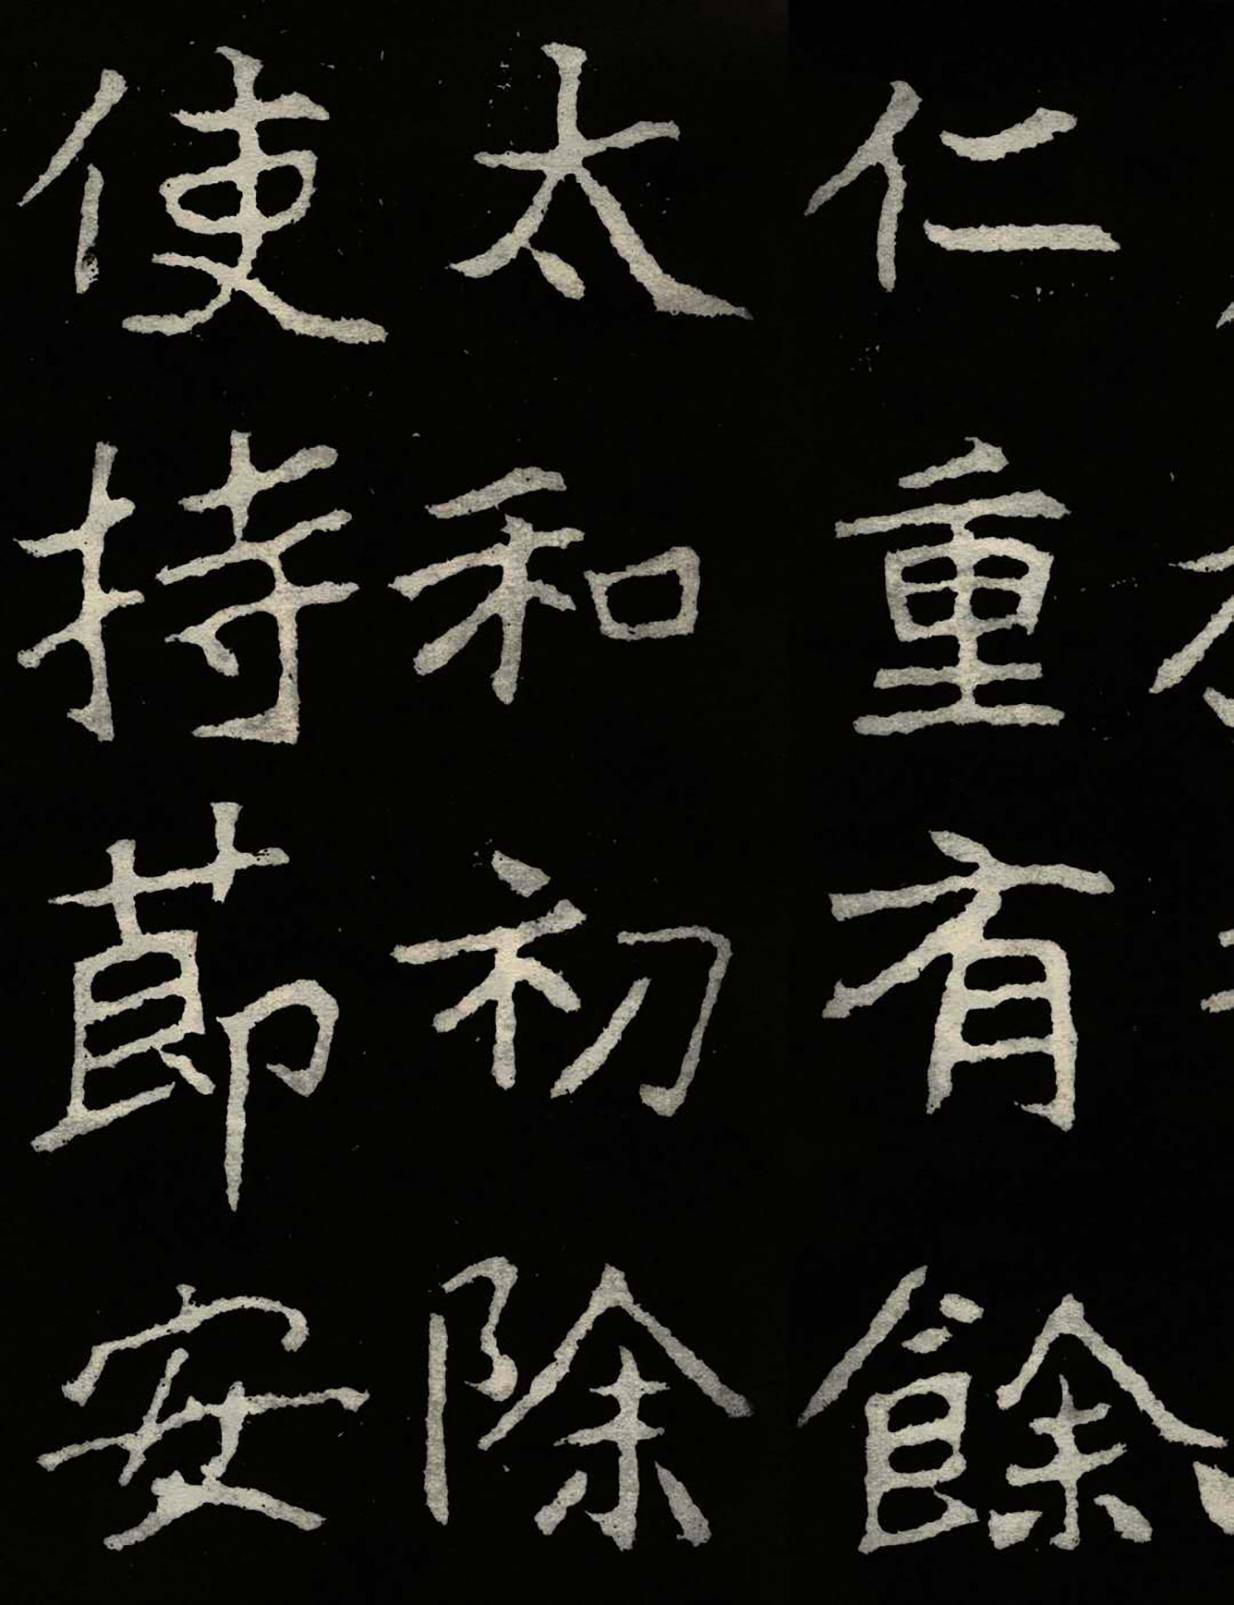 仁重有餘
太和初除
使持節安